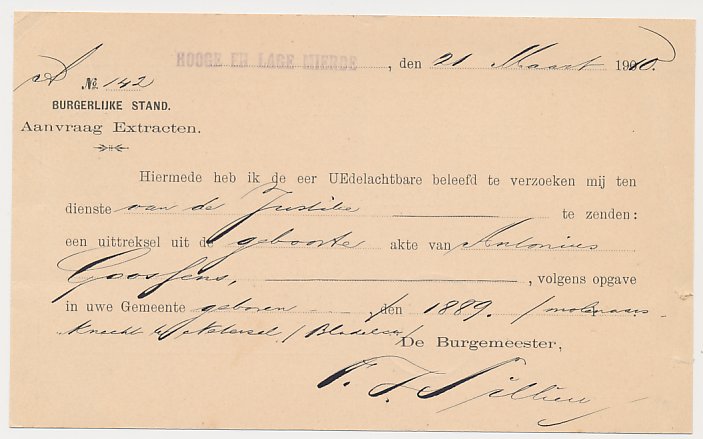 HOOGE EN LAGE MIERDE, den 21 Maart 1910.
A № 142
BURGERLIJKE STAND.
Aanvraag Extracten.
Hiermede heb ik de eer UEdelachtbare beleefd te verzoeken mij ten
dienste van de Justitie te zenden:
een uittreksel uit de geboorte akte van Antonius
Goossens, , volgens opgave
in uwe Gemeente geboren den 1889. / molenaars-
knecht te Netersel / Bladel
De Burgemeester,